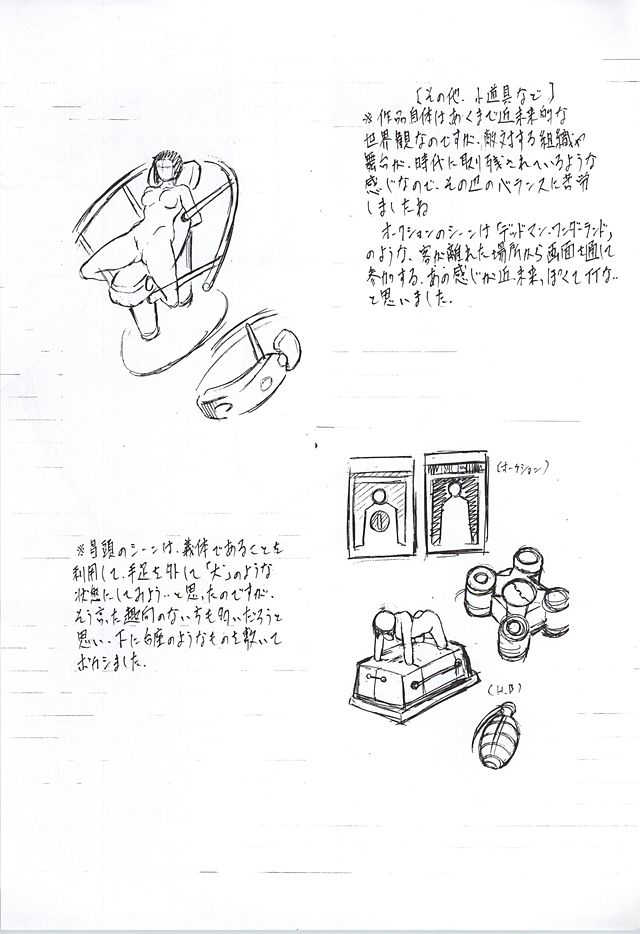 [その他、小道具など]
※作品自体はあくまで近未来的な
世界観なのですが、敵対する組織や
舞台が、時代に取り残されているような
感じなので、その辺のバランスに苦労
しましたね
オークションのシーンは「デッドマン・ワンダーランド」
のような、客が離れた場所から画面を通して
参加する、あの感じが近未来っぽくてイイな…
と思いました。
(オークション)
※冒頭のシーンは、義体であることを
利用して、手足を外して「犬」のような
状態にしてみよう…と思ったのですが、
そう言った趣向のない方も多いだろうと
思い、下に台座のようなものを敷いて
ボカシました。
(H.B)